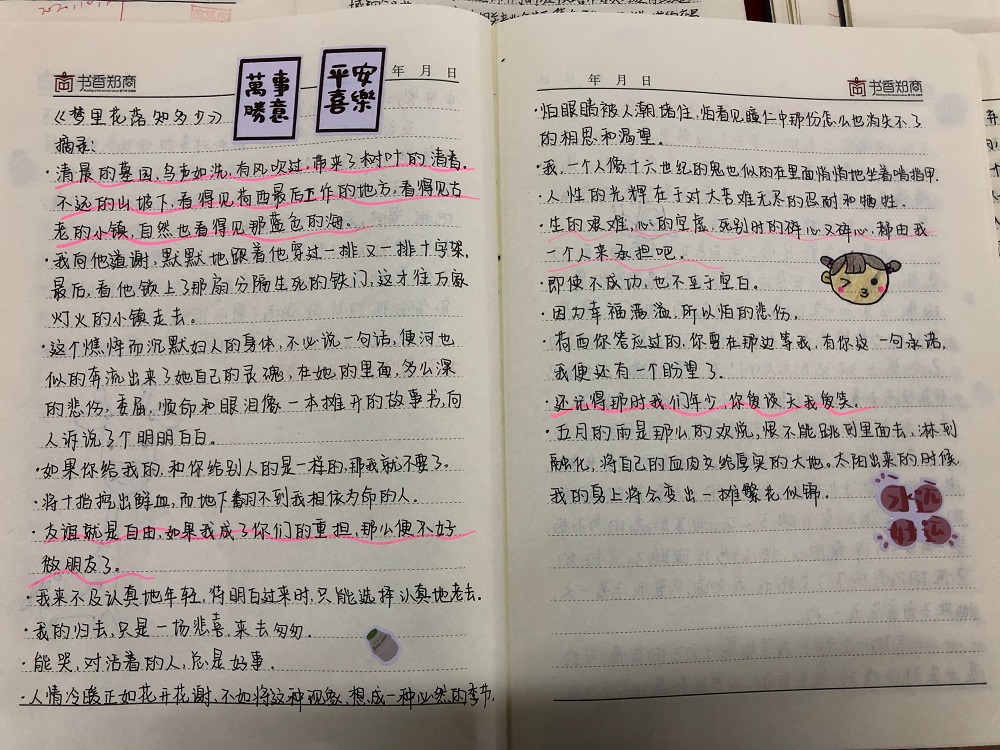 书香郑商
萬事勝意
平安喜樂
年 月 日
《梦里花落知多少》
摘录:
·清晨的墓园,鸟声如洗,有风吹过,带来了树叶的清香。
不远的山坡下,看得见荷西最后工作的地方,看得见古
老的小镇,自然也看得见那蓝色的海。
·我向他道谢,默默地跟着他穿过一排又一排十字架,
最后,看他锁上了那扇分隔生死的铁门,这才往万家
灯火的小镇走去。
·这个憔悴而沉默妇人的身体,不必说一句话,便河也
似的奔流出来了她自己的灵魂,在她的里面,多么深
的悲伤,委屈,顺命和眼泪像一本摊开的故事书,向
人诉说了个明明白白。
·如果你给我的,和你给别人的是一样的,那我就不要了。
·将十指挖出鲜血,而地下翻不到我相依为命的人。
·友谊就是自由,如果我成了你们的重担,那么便不好
做朋友了。
·我来不及认真地年轻,待明白过来时,只能选择认真地老去。
·我的归去,只是一场悲喜,来去匆匆。
·能哭,对活着的人,总是好事。
·人情冷暖正如花开花谢,不如将这种现象,想成一种必然的季节。
年 月 日
书香郑商
·怕眼睛被人潮堵住,怕看见瞳仁中那份怎么也消失不了
的相思和渴望。
·我,一个人像十六世纪的鬼也似的在里面悄悄地坐着啃指甲.
·人性的光辉在于对大苦难无尽的忍耐和牺牲.
·生的艰难,心的空虚,死别时的碎心又碎心,都由我
一个人来承担吧。
·即使不成功,也不至于空白。
·因为幸福满溢,所以怕的悲伤.
·荷西你答应过的,你要在那边等我,有你这一句承诺,
我便还有一个盼望了。
·还记得那时我们年少,你爱谈天我爱笑.
·五月的雨是那么的欢悦,恨不能跳到里面去,淋到
融化,将自己的血肉交给厚实的大地。太阳出来的时候,
我的身上将会变出一摊繁花似锦.
永远
好运